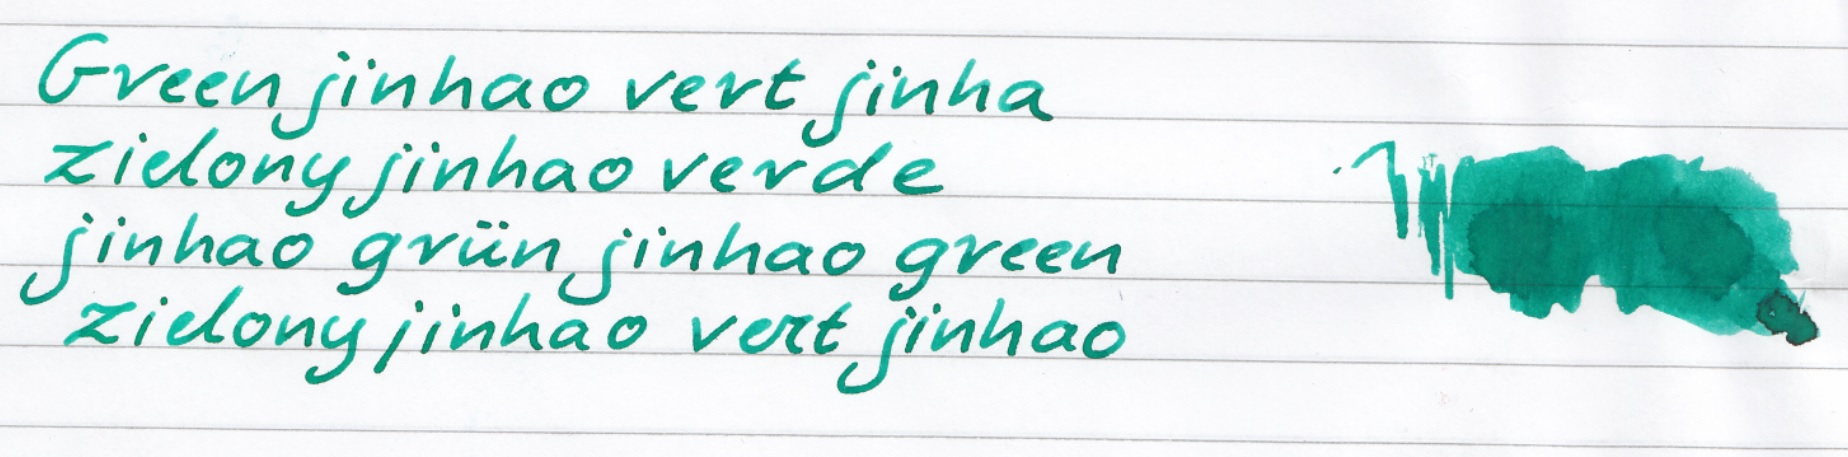 Green jinhao vert jinha
zielony jinhao verde
jinhao grün jinhao green
zielony jinhao vert jinhao